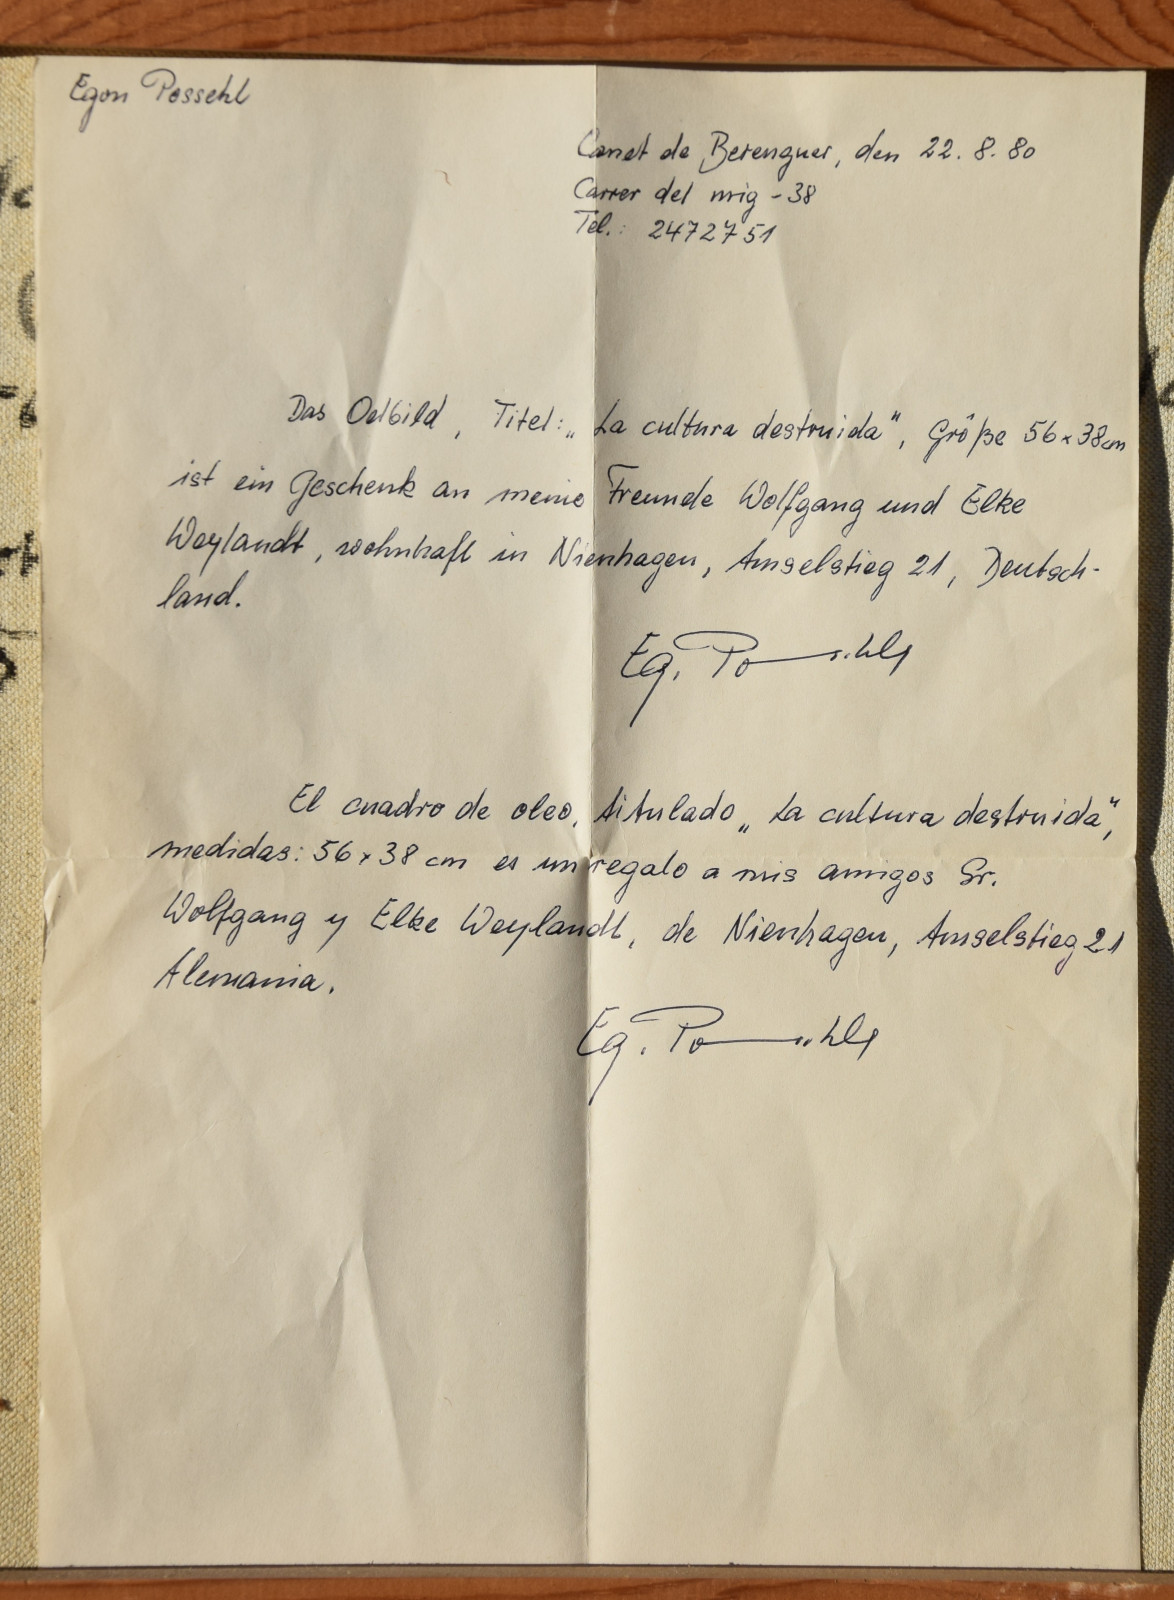 Egon Possehl
Canet de Berenguer, den 22. 8. 80
Carrer del mig - 38
Tel.: 2472751
Das Oelbild, Titel: „La cultura destruida“, Größe 56 x 38 cm
ist ein Geschenk an meine Freunde Wolfgang und Elke
Weylandt, wohnhaft in Nienhagen, Amselstieg 21, Deutsch-
land.
Eg. Possehl
El cuadro de oleo, titulado „La cultura destruida“,
medidas: 56 x 38 cm es un regalo a mis amigos Sr.
Wolfgang y Elke Weylandt, de Nienhagen, Amselstieg 21
Alemania.
Eg. Possehl